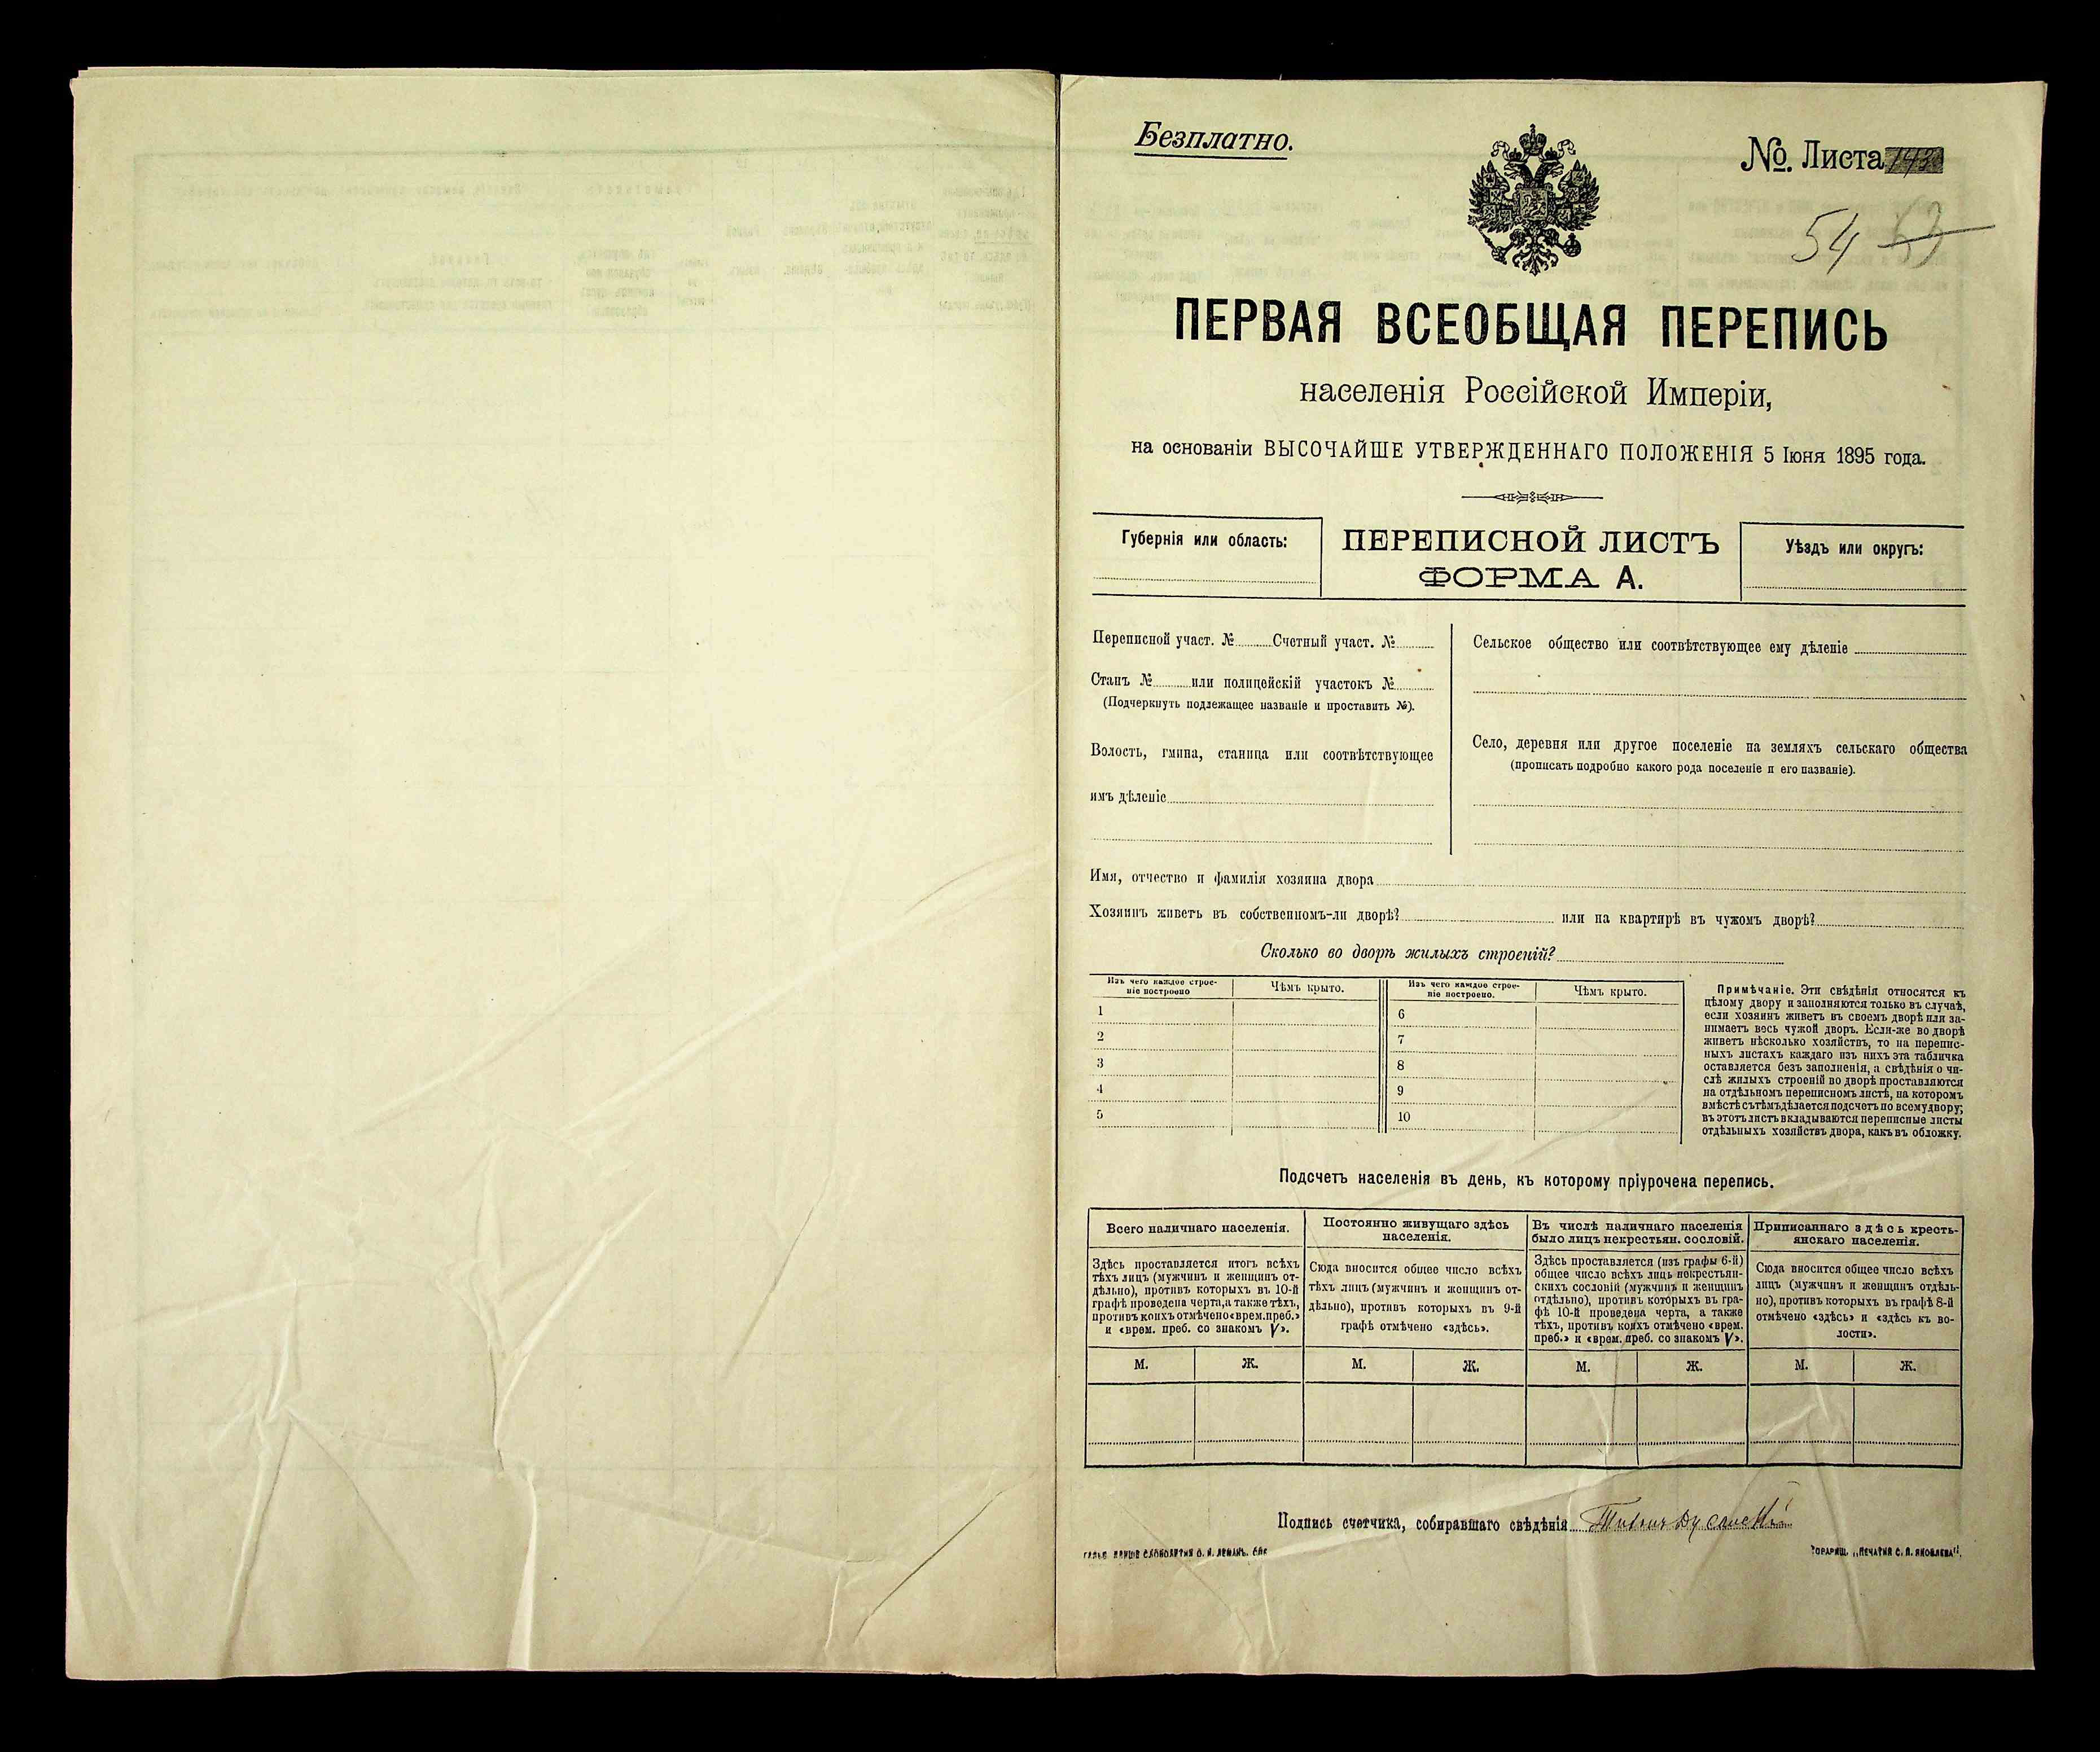 Безплатно.
№. Листа
54 63
ПЕРВАЯ ВСЕОБЩАЯ ПЕРЕПИСЬ
населенія Россійской Имперіи,
на основаніи ВЫСОЧАЙШЕ УТВЕРЖДЕННАГО ПОЛОЖЕНІЯ 5 Іюня 1895 года.
Губернія или область:
ПЕРЕПИСНОЙ ЛИСТЪ
ФОРМА А.
Уѣздъ или округъ:
Переписной участ. № Счетный участ. №
Станъ № или полицейскій участокъ №
(Подчеркнуть подлежащее названіе и проставить №).
Волость, гмина, станица или соотвѣтствующее
имъ дѣленіе
Сельское общество или соотвѣтствующее ему дѣленіе
Село, деревня или другое поселеніе на земляхъ сельскаго общества
(прописать подробно какого рода поселеніе и его названіе).
Имя, отчество и фамилія хозяина двора
Хозяинъ живетъ въ собственномъ-ли дворѣ? или на квартирѣ въ чужомъ дворѣ?
Сколько во дворѣ жилыхъ строеній?
Изъ чего каждое строе-
ніе построено
Чѣмъ крыто.
1
2
3
4
5
Изъ чего каждое строе-
ніе построено.
Чѣмъ крыто.
6
7
8
9
10
Примѣчаніе. Эти свѣдѣнія относятся къ
цѣлому двору и заполняются только въ случаѣ,
если хозяинъ живетъ въ своемъ дворѣ или за-
нимаетъ весь чужой дворъ. Если-же во дворѣ
живетъ нѣсколько хозяйствъ, то на перепис-
ныхъ листахъ каждаго изъ нихъ эта табличка
оставляется безъ заполненія, а свѣдѣнія о чи-
слѣ жилыхъ строеній во дворѣ проставляются
на отдѣльномъ переписномъ листѣ, на которомъ
вмѣстѣ съ тѣмъ дѣлается подсчетъ по всему двору;
въ этотъ листъ вкладываются переписные листы
отдѣльныхъ хозяйствъ двора, какъ въ обложку.
Подсчетъ населенія въ день, къ которому пріурочена перепись.
Всего наличнаго населенія.
Здѣсь проставляется итогъ всѣхъ
тѣхъ лицъ (мужчинъ и женщинъ от-
дѣльно), противъ которыхъ въ 10-й
графѣ проведена черта, а также тѣхъ,
противъ коихъ отмѣчено «врем. преб.»
и «врем. преб. со знакомъ V».
М. Ж.
Постоянно живущаго здѣсь
населенія.
Сюда вносится общее число всѣхъ
тѣхъ лицъ (мужчинъ и женщинъ от-
дѣльно), противъ которыхъ въ 9-й
графѣ отмѣчено «здѣсь».
М. Ж.
Въ числѣ наличнаго населенія
было лицъ некрестьян. сословій.
Здѣсь проставляется (изъ графы 6-й)
общее число всѣхъ лицъ некрестьян-
скихъ сословій (мужчинъ и женщинъ
отдѣльно), противъ которыхъ въ гра-
фѣ 10-й проведена черта, а также
тѣхъ, противъ коихъ отмѣчено «врем.
преб.» и «врем. преб. со знакомъ V».
М. Ж.
Приписаннаго здѣсь кресть-
янскаго населенія.
Сюда вносится общее число всѣхъ
лицъ (мужчинъ и женщинъ отдѣль-
но), противъ которыхъ въ графѣ 8-й
отмѣчено «здѣсь» и «здѣсь къ во-
лости».
М. Ж.
Подпись счетчика, собиравшаго свѣдѣнія
ТОВАРИЩ. „ПЕЧАТНЯ С. П. ЯКОВЛЕВА".